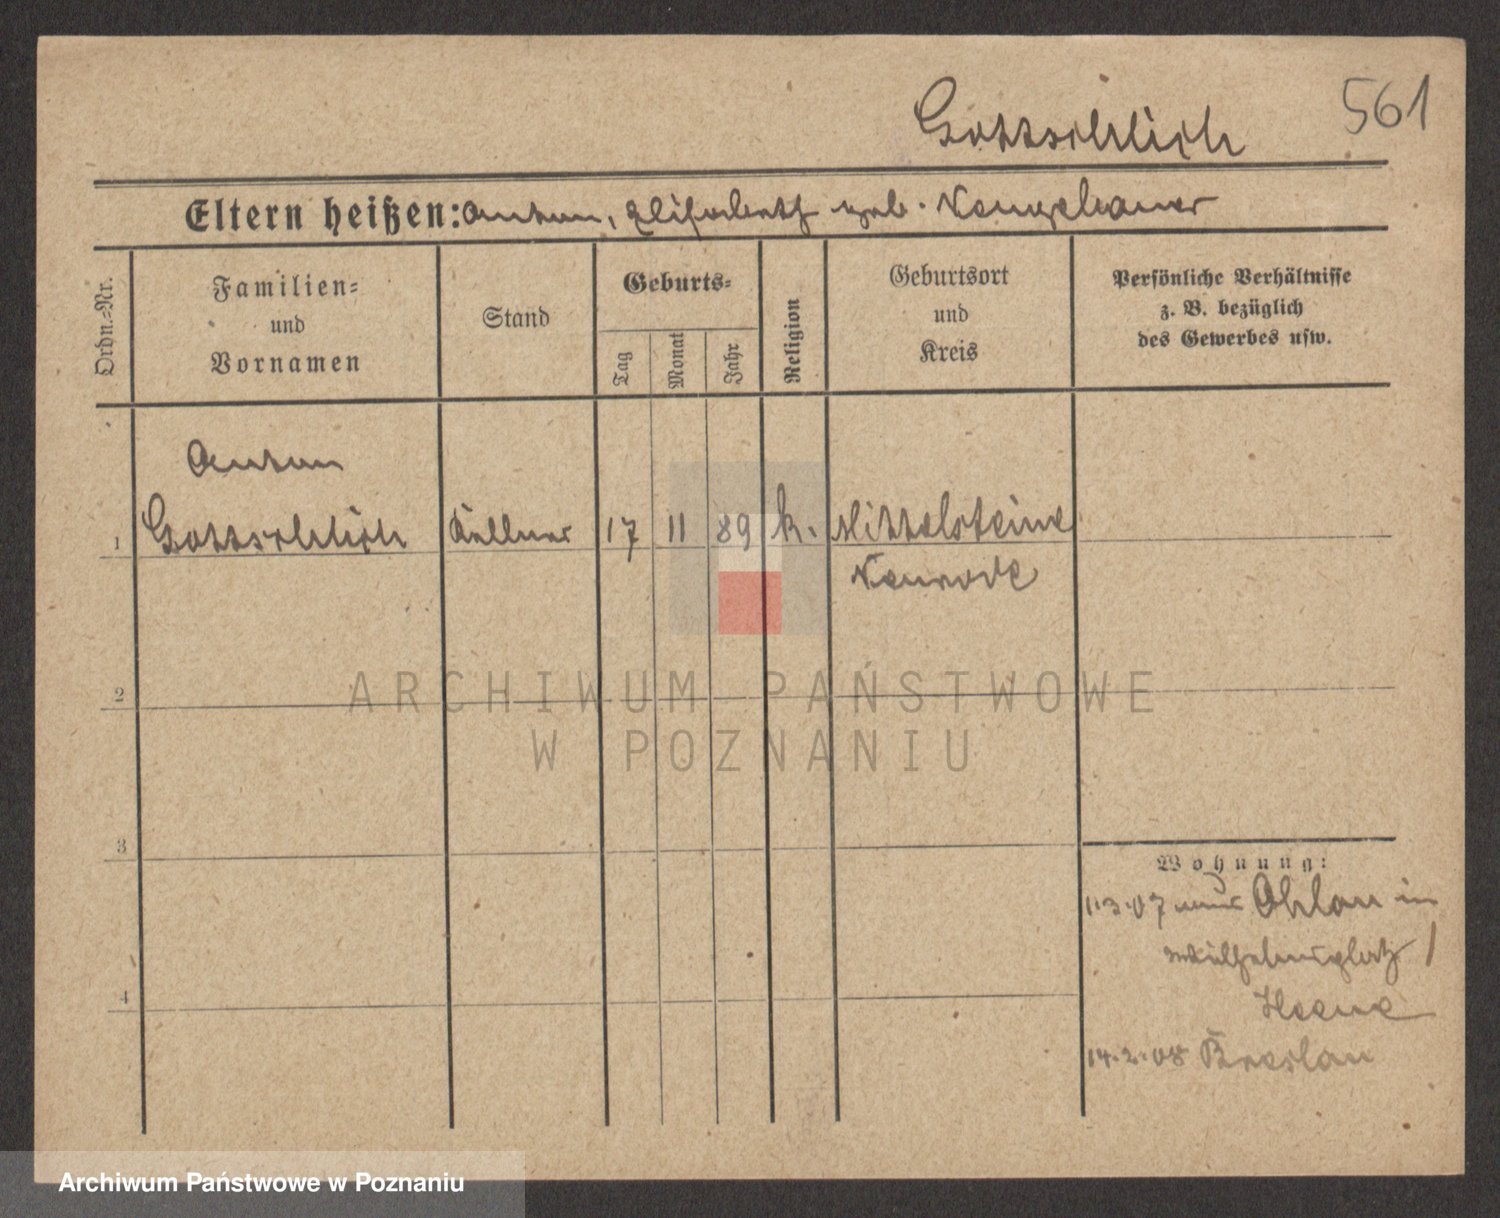 561
Gottschlich
Eltern heißen: Anton, Elisabeth geb.
Ordn.-Nr.
Familien-
und
Vornamen
Stand
Geburts-
Tag
Monat
Jahr
Religion
Geburtsort
und
Kreis
Persönliche Verhältnisse
z. B. bezüglich
des Gewerbes usw.
Anton
1 Gottschlich Kellner 17 11 89 k. Mittelsteine
Neurode
2
ARCHIWUM PAŃSTWOWE
W POZNANIU
3
Wohnung:
1.3.07 aus Ohlau in
Wilhelmsplatz 1
4
14.2.08 Breslau
Archiwum Państwowe w Poznaniu